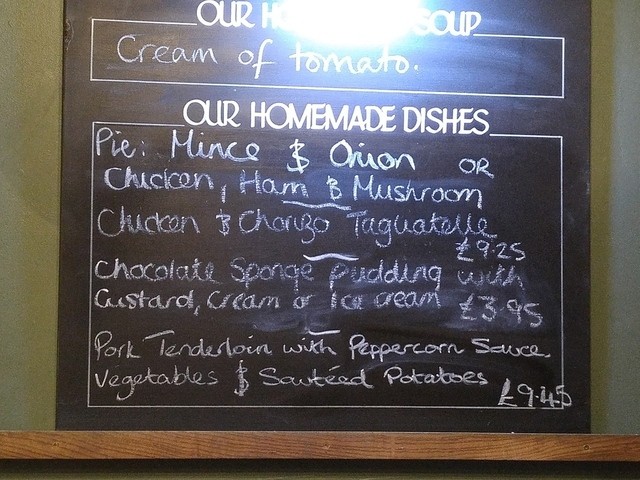 OUR SOUP
Cream of tomato.
OUR HOMEMADE DISHES
Pie: Mince & Onion OR
Chicken, Ham & Mushroom
Chicken & Chorizo Tagliatelle
£9.25
Chocolate Sponge pudding with
Custard, Cream or Ice cream £3.95
Pork Tenderloin with Peppercorn Sauce
Vegetables & Sautéed Potatoes
£9.45